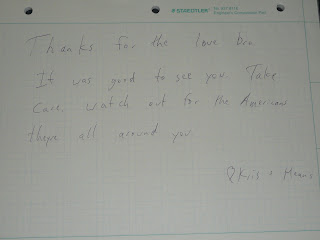 STAEDTLER
Thanks for the love bro.
It was good to see you. Take
care, watch out for the Americans
theyre all around you.